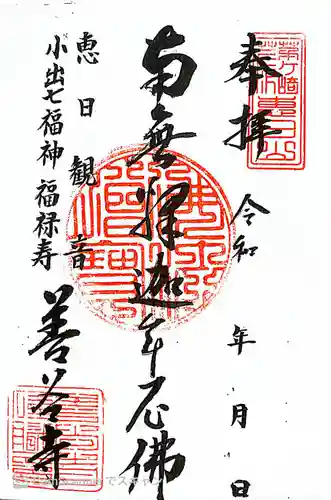 奉拝
令和 年 月 日
南無釋迦牟尼佛
恵日観音
小出七福神 福禄寿
善谷寺